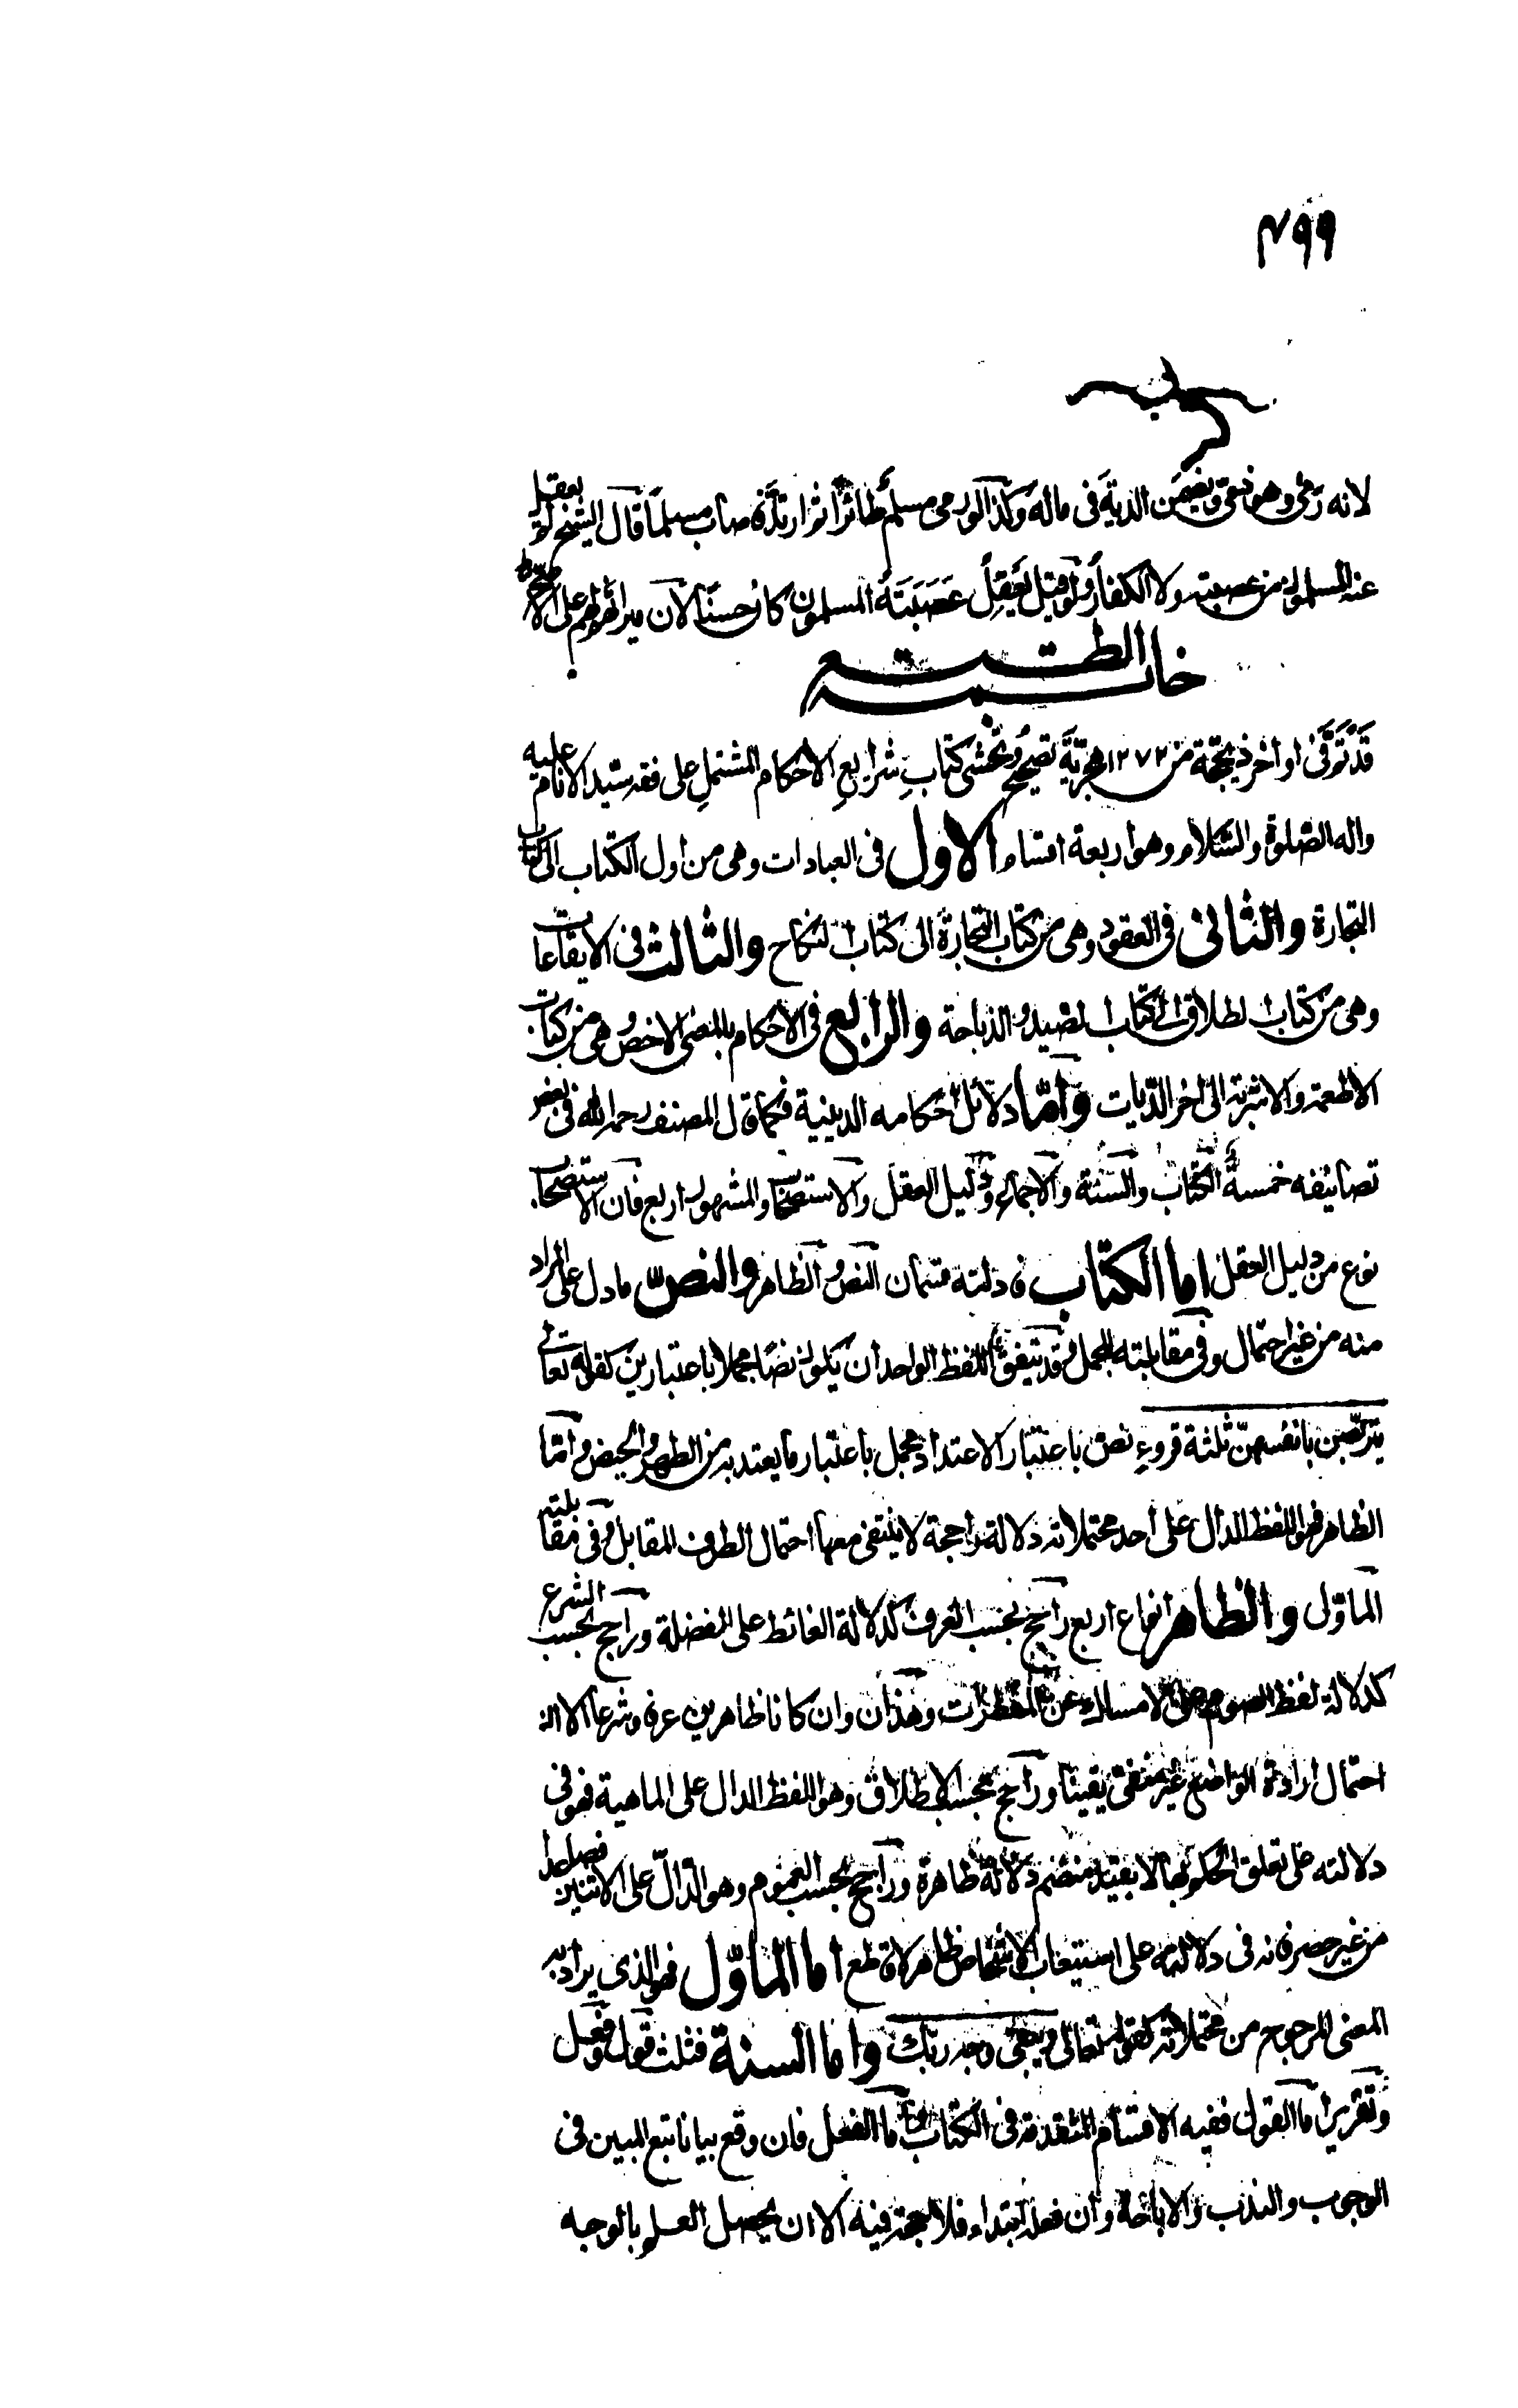 ٤٩٩
لانه رمى وهو ذمى ويضمن الدية فى ماله وكذا لو رمى مسلم طائرا ثم ارتد فاصاب مسلما قال الشيخ لا يعقل
عنه المسلمون من عصبته ولا الكفار ولو قيل يعقل عصبته المسلمون كان حسنا لان ميراثه لهم على الاصح
خاتمة الطبع
قد توفى اواخر ذيحجة من ١٢٧٢ هجرية تصحيح وتحشى كتاب شرايع الاحكام المشتمل على فقه سيد الانام عليه
واله الصلوة والسلام وهو اربعة اقسام الاول فى العبادات وهى من اول الكتاب الى كتاب
التجارة والثانى فى العقود وهى من كتاب التجارة الى كتاب النكاح والثالث فى الايقاعات
وهى من كتاب الطلاق الى كتاب الصيد والذباحة والرابع فى الاحكام بالمعنى الاخص وهى من كتاب
الاطعمة والاشربة الى اخر الديات واما دلائل احكامه الدينية فكما قال المصنف رحمه الله فى بعض
تصانيفه خمسة الكتاب والسنة والاجماع ودليل العقل والاستصحاب والمشهور اربع فان الاستصحاب
نوع من دليل العقل اما الكتاب فادلته قسمان النص والظاهر والنص ما دل على المراد
منه من غير احتمال وفى مقابلته المجمل وقد يتفق اللفظ الواحد ان يكون نصا مجملا باعتبارين كقوله تعالى
يتربصن بانفسهن ثلثة قروء نص باعتبار الاعتداد مجمل باعتبار ما يعتد به من الطهر والحيض واما
الظاهر فهو اللفظ الدال على احد محتملاته دلالة راجحة لا ينتفى معها احتمال الطرف المقابل وفى مقابلته
الماؤل والظاهر انواع اربع راجح بحسب العرف كدلالة الغائط على الفضلة وراجح بحسب الشرع
كدلالة لفظ الصوم على الامساك عن المفطرات وهذان وان كانا ظاهرين عرفا وشرعا الا ان
احتمال ارادة الواضع غير منفى يقينا وراجح بحسب الاطلاق وهو اللفظ الدال على الماهية فهو فى
دلالته على تعلق الحكم بها لا بقيد منضم دلالة ظاهرة وراجح بحسب العموم وهو الدال على الاثنين فصاعدا
من غير حصر فانه فى دلالته على استيعاب الاشخاص ظاهر لا قاطع اما الماؤل فهو الذى يراد به
المعنى المرجوح من محتملاته كقوله تعالى ويبقى وجه ربك واما السنة فثلث قول وفعل
وتقرير اما القول ففيه الاقسام المتقدمة فى الكتاب واما الفعل فان وقع بيانا تبع المبين فى
الوجوب والندب والاباحة وان فعل ابتداء فلا حجة فيه الا ان يحصل العلم بالوجه